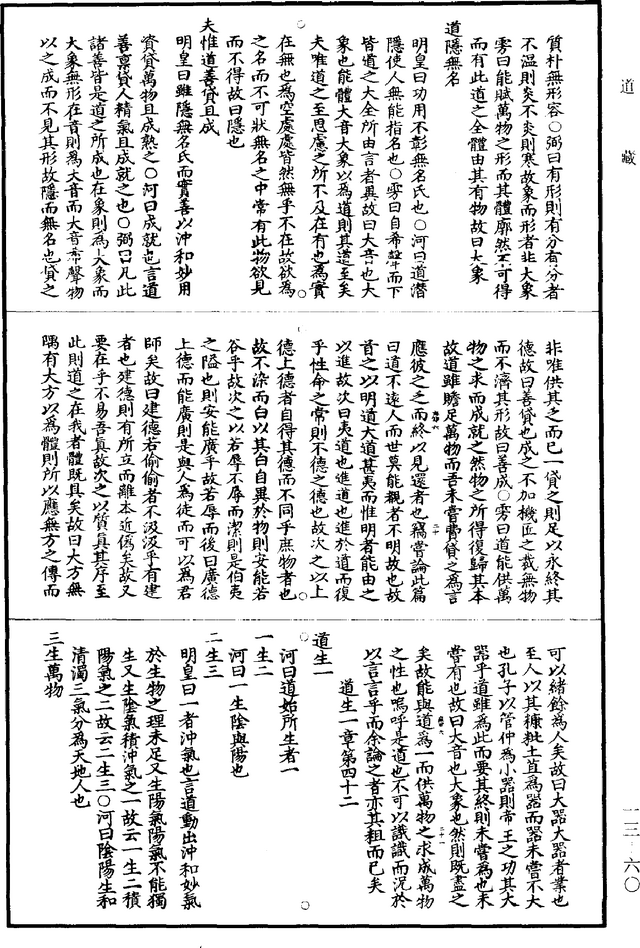 道藏
質朴無形容○弼曰有形則有分有分者
不溫則炎不炎則寒故象而形者非大象
雱曰能賦萬物之形而其體廓然不可得
而有此道之全體由其有物故曰大象
道隱無名
明皇曰功用不彰無名氏也○河曰道潛
隱使人無能指名也○雱曰自希聲而下
皆道之大全所由言者異故曰大音也大
象也能體大音大象以為道則其道至矣
夫唯道之至思慮之所不及在有也為實
在無也為空處處皆然無乎不在故欲為
之名而不可狀無名之中常有此物欲見
而不得故曰隱也
夫惟道善貸且成
明皇曰雖隱無名氏而實善以沖和妙用
資貸萬物且成熟之○河曰成就也言道
善稟貸人精氣且成就之也○弼曰凡此
諸善皆是道之所成也在象則為大象而
大象無形在音則為大音而大音希聲物
以之成而不見其形故隱而無名也貸之
非唯供其乏而已一貸之則足以永終其
德故曰善貸也成之不加機匠之裁無物
而不濟其形故曰善成○雱曰道能供萬
物之求而成就之然物之所得復歸其本
故道雖贍足萬物而吾未嘗費貸之為言
應彼之乏而終以見還者也竊嘗論此篇
曰道不遠人而世莫能親者不明故也故
首之以明道大道甚夷而惟明者能由之
以進故次曰夷道也進道也進於道而復
乎性命之常則不德之德也故次之以上
德上德者自得其德而不同乎庶物者也
故不染而白以其白自異於物則安能若
谷乎故次之以若辱不辱而潔則是伯夷
之隘也則安能廣乎故若辱而後曰廣德
上德而能廣則是與人為徒而可以為君
師矣故曰建德若偷偷者不汲汲乎有建
者也建德則有所立而離本近偽矣故又
要在乎不易吾真故次之以質真其序至
此則道之在我者體既具矣故曰大方無
隅有大方以為體則所以應無方之傳而
可以緒餘為人矣故曰大器大器者業也
至人以其糠粃土苴為器而器未嘗不大
也孔子以管仲為小器則帝王之功其大
器乎道雖為此而要其終則未嘗為也未
嘗有也故曰大音也大象也然則既盡之
矣故能與道為一而供萬物之求成萬物
之性也嗚呼是道也不可以識識而況於
以言言乎而余論之者亦其粗而已矣
道生一章第四十二
道生一
河曰道始所生者一
一生二
河曰一生陰與陽也
二生三
明皇曰一者沖氣也言道動出沖和妙氣
於生物之理未足又生陽氣陽氣不能獨
生又生陰氣積沖氣之一故云一生二積
陽氣之二故云二生三○河曰陰陽生和
清濁三氣分為天地人也
三生萬物
一三—六〇